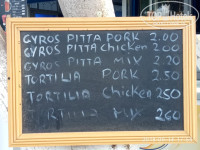 GYROS PITTA PORK 2.00
GYROS PITTA Chicken 200
GYROS PITTA MIX 2.20
TORTILIA PORK 2.50
TORTILIA Chicken 250
RTILIA MIX 260